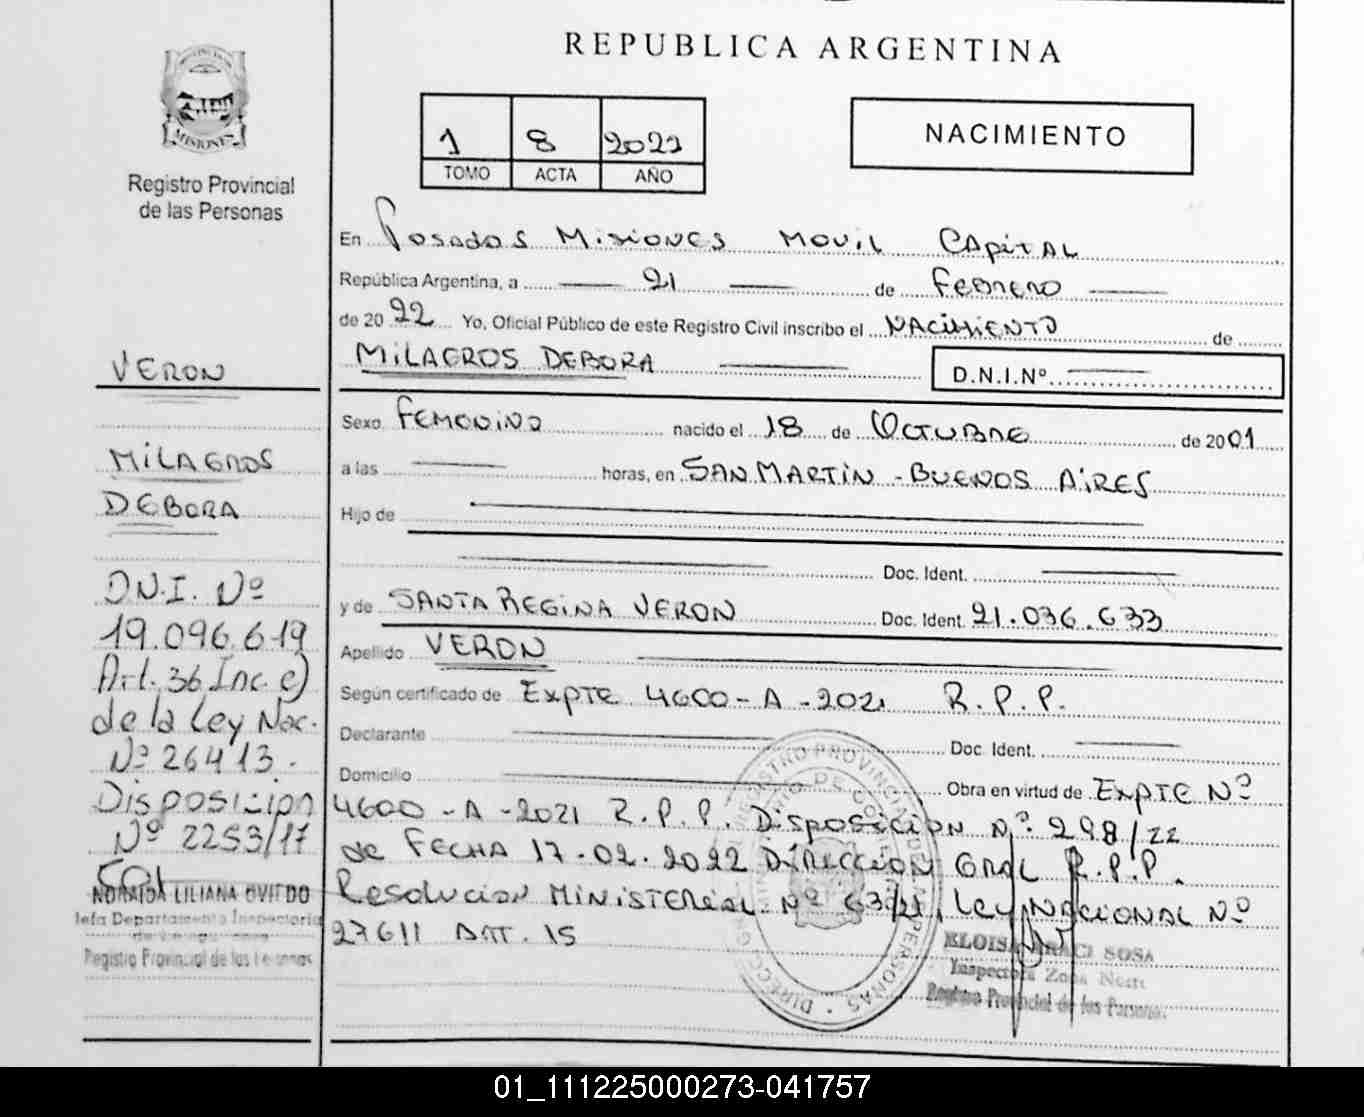 REPUBLICA ARGENTINA
MISIONES
Registro Provincial
de las Personas
1 8 2022
TOMO ACTA AÑO
NACIMIENTO
En Posadas Misiones Movil Capital
República Argentina, a 21 de Febrero
de 2022 Yo, Oficial Público de este Registro Civil inscribo el Nacimiento de
MILAGROS DEBORA D.N.I.Nº
Sexo Femenino nacido el 18 de Octubre de 2001
a las horas, en SAN MARTIN - BUENOS AIRES
Hijo de
Doc. Ident.
y de SANTA REGINA VERON Doc. Ident. 21.036.633
Apellido VERON
Según certificado de Expte 4600-A-2021 R.P.P.
Declarante Doc. Ident.
Domicilio Obra en virtud de Expte Nº
4600-A-2021 R.P.P. Disposicion Nº 298/22
de Fecha 17.02.2022 Direccion Gral R.P.P.
Resolucion Ministerial Nº 63/21, Ley Nacional Nº
27611 Art. 15
VERON
MILAGROS
DEBORA
D.N.I. Nº
19.096.619
Art. 36 Inc. c)
de la Ley Nac.
Nº 26413.
Disposicion
Nº 2253/17
LILIANA OVIEDO
Jefa Departamento Inspectoria
Registro Provincial de las Personas
ELOISA IRACI SOSA
Inspectora Zona Norte
Registro Provincial de las Personas
01_111225000273-041757